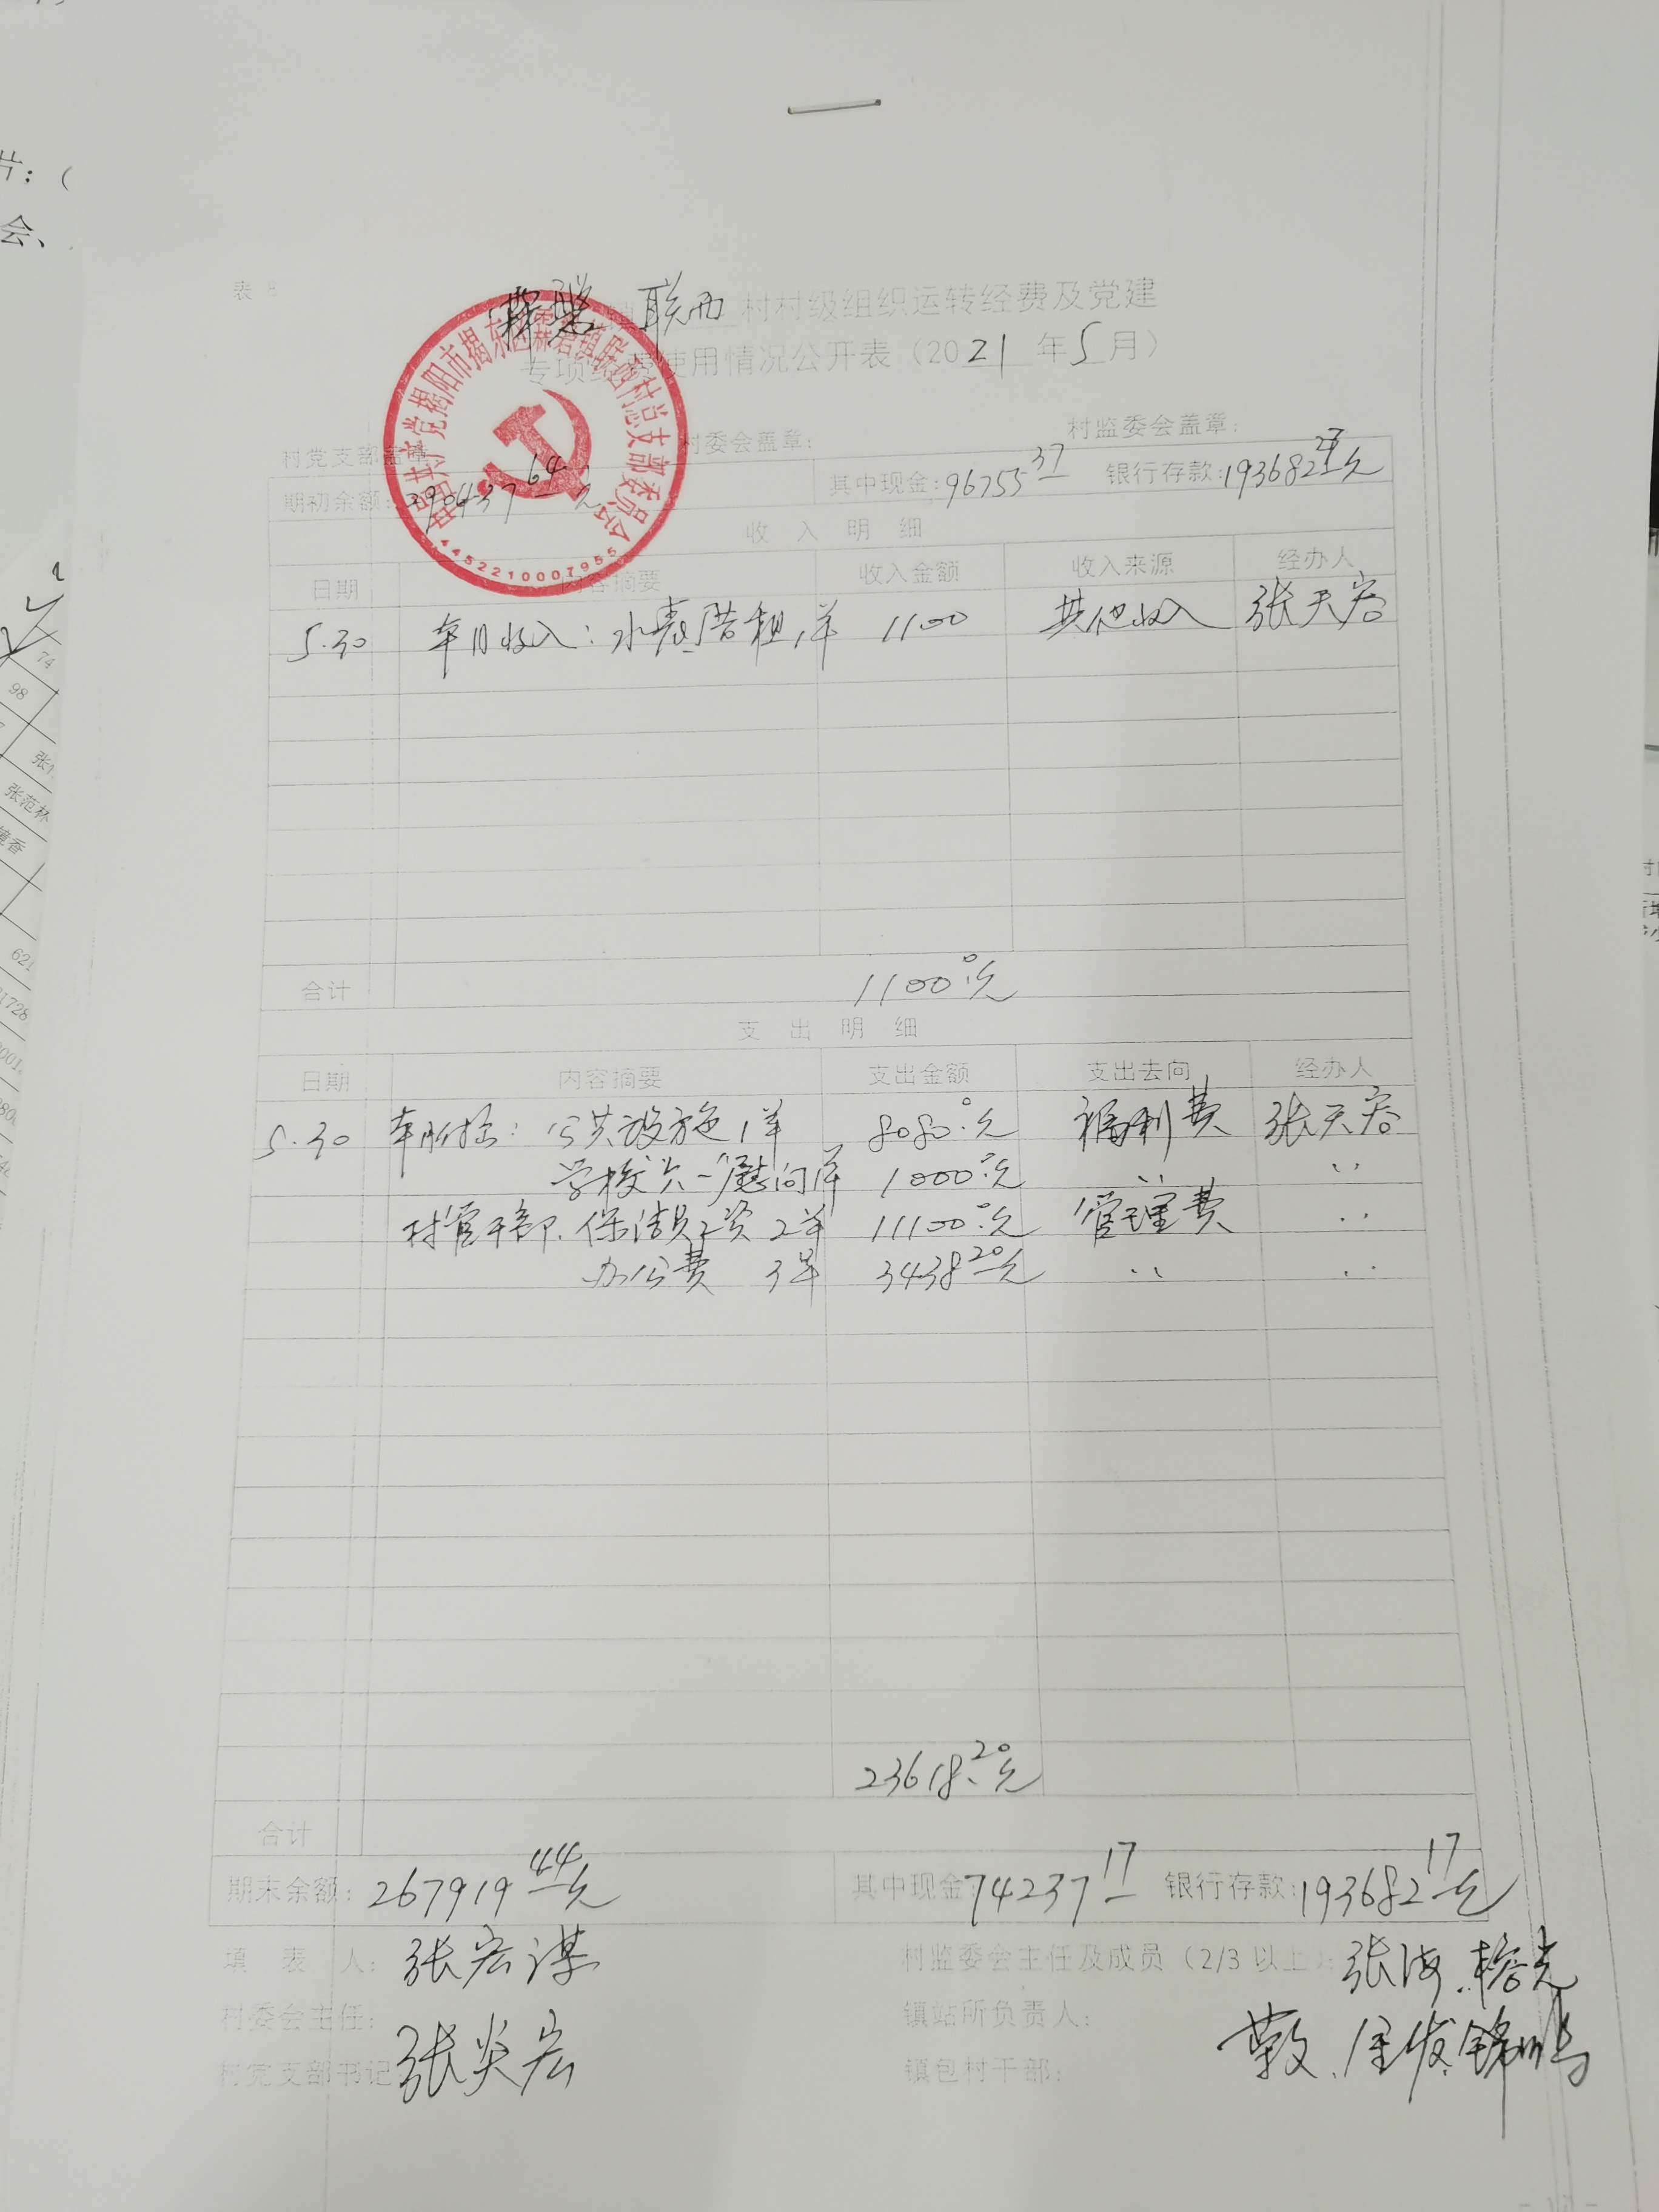 片：（
会、
表 8
霖磐镇 联西 村村级组织运转经费及党建
专项经费使用情况公开表（2021年5月）
中国共产党揭阳市揭东区霖磐镇联西村总支部委员会
4452210007955
村党支部盖章：
村委会盖章：
村监委会盖章：
期初余额：290437.64元 其中现金：96755.37 银行存款：193682.27元
收 入 明 细
日期 内容摘要 收入金额 收入来源 经办人
5.30 本月收入：水表 1单 1100 其他收入 张天容
合计 1100.0元
支 出 明 细
日期 内容摘要 支出金额 支出去向 经办人
5.30 公共设施 1单 8080.0元 福利费 张天容
学校六一慰问 1单 1000.0元 〃 〃
村管干部、保洁员工资 2单 11100.0元 管理费 〃
办公费 3单 3438.20元 〃 〃
23618.20元
合计
期末余额：267919.44元 其中现金74237.17 银行存款：193682.17元
填 表 人：张宏谋 村监委会主任及成员（2/3以上）：张海
村委会主任： 镇站所负责人：
村党支部书记 张炎宏 镇包村干部：
74
98
张范林
621
1728